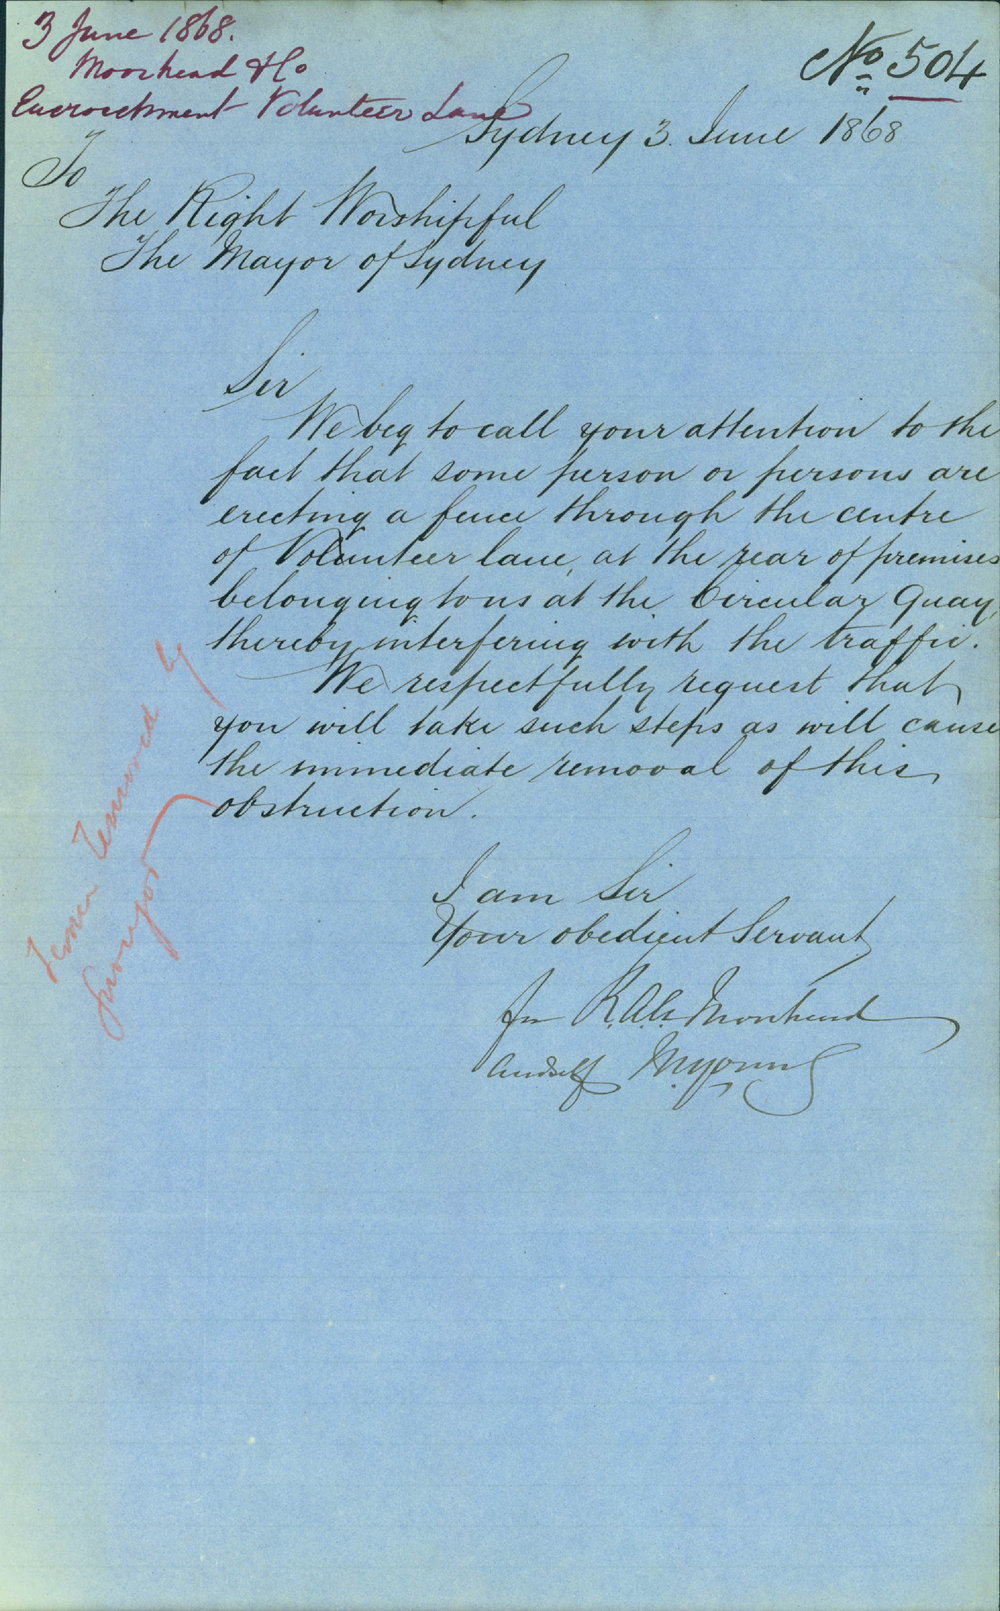 3 June 1868.
Moorhead & Co
Encroachment Volunteer Lane
No 504
Sydney 3. June 1868
To
The Right Worshipful
The Mayor of Sydney
Sir
We beg to call your attention to the
fact that some person or persons are
erecting a fence through the centre
of Volunteer lane, at the rear of premises
belonging to us at the Circular Quay,
thereby interfering with the traffic.
We respectfully request that
you will take such steps as will cause
the immediate removal of this
obstruction.
I am Sir
Your obedient Servant
for R.A.A. Moorhead
and self M. Young
Fence removed by
Surveyor